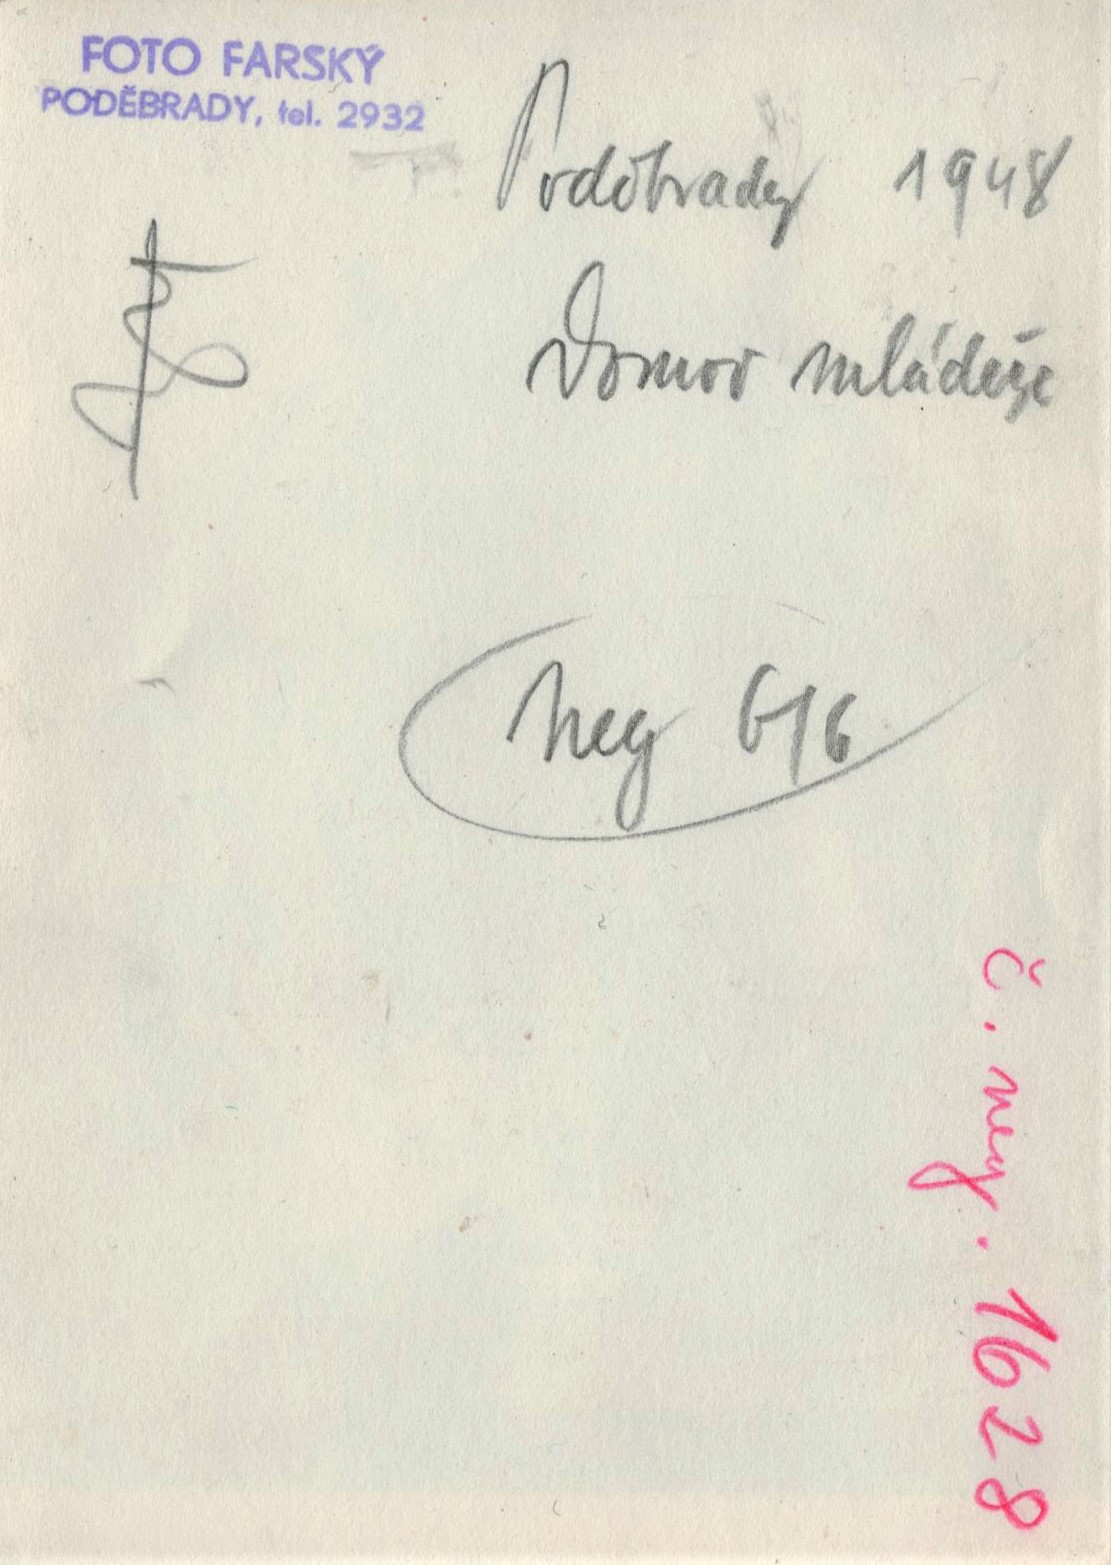 FOTO FARSKÝ
PODĚBRADY, tel. 2932
Poděbrady 1948
Domov mládeže
neg 616
č. neg. 1628